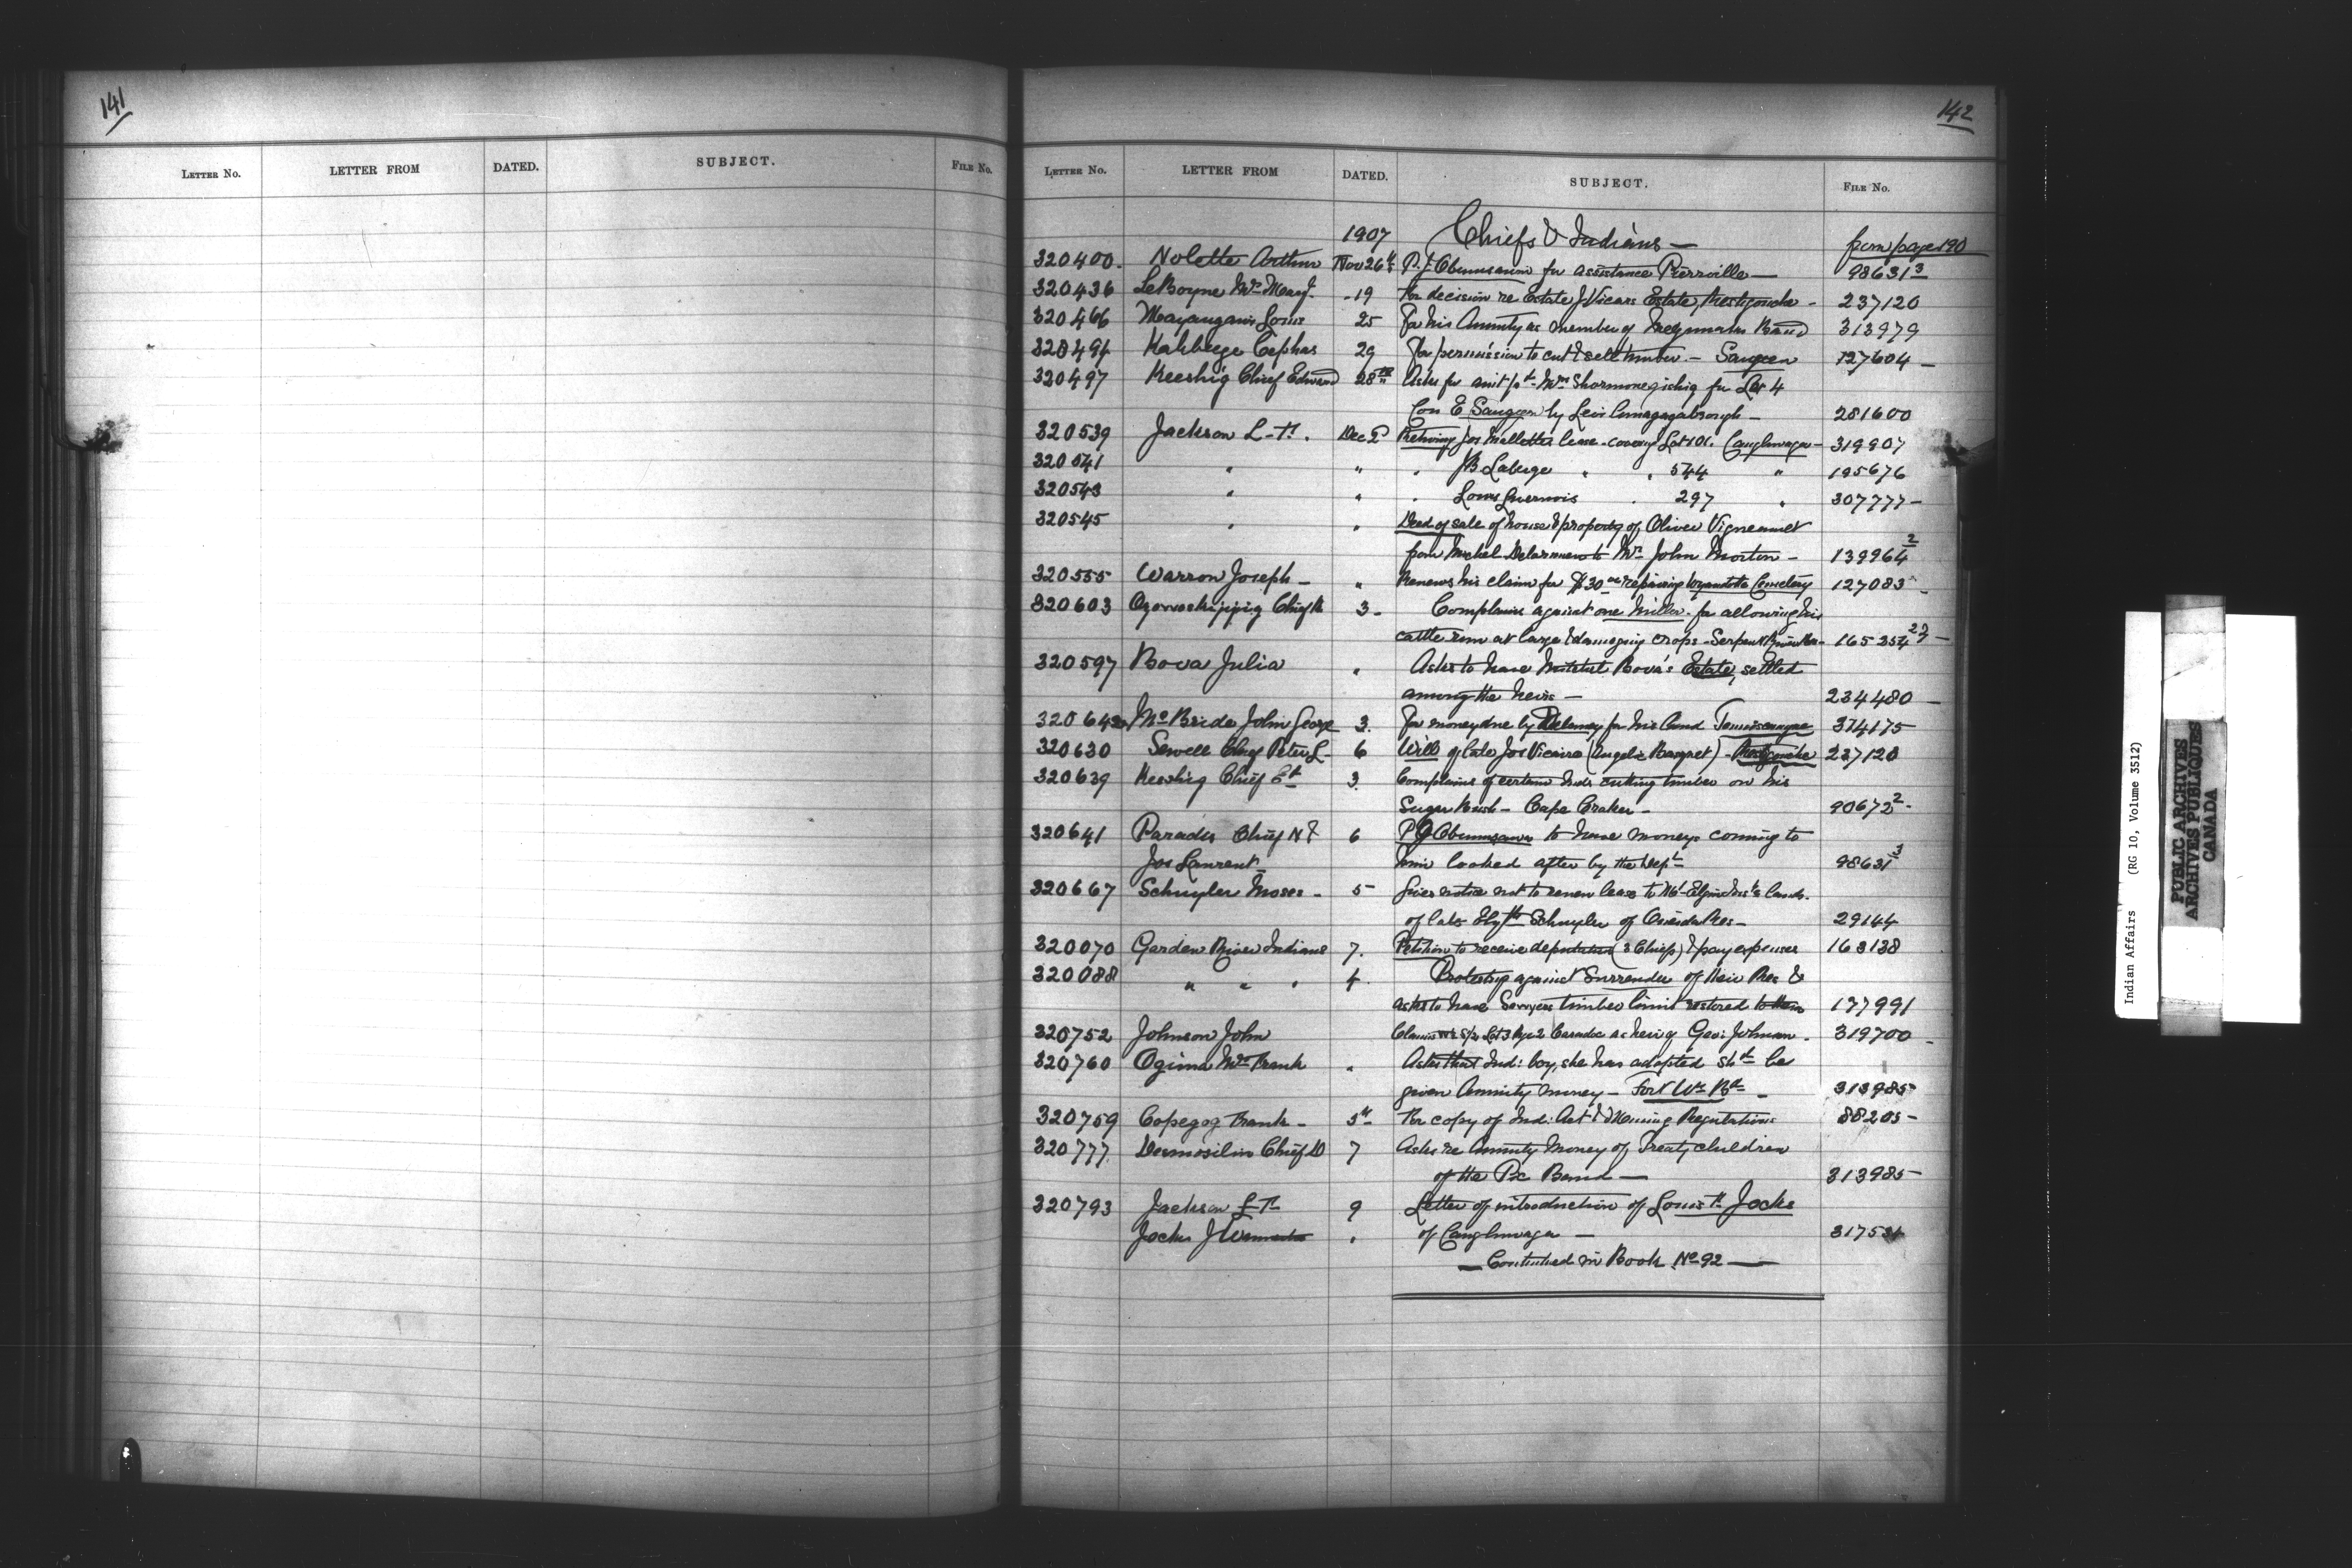 141
LETTER No. LETTER FROM DATED. SUBJECT. FILE No.
142
LETTER No. LETTER FROM DATED. SUBJECT. FILE No.
1907 Chiefs & Indians — from page 190
320400. Nolette Arthur Nov 26th P. J. Obumsawin for assistance Pierrville — 98631 3
320436 LeBoyne Mrs Mary J. -19 For decision re Estate J Vicars Estate, Restigouche - 237120
320466 Louis 25 for his Annuity as member of Band 313979
320494 Kahbeege Cephas 29 for permission to cut & sell timber. — Saugeen 127604 —
320497 Keeshig Chief Edward 28th Asks for Mrs for Lot 4
Con E Saugeen by Levi — 281600
320539 Jackson L-T. Dec 2 Retiring Jos lease - covering Lot 101. Caughnwaga - 319907
320541 " " . JB Laberge " . 544 " 195676
320543 " " . Louis . 297 " 307777 —
320545 " " Deed of sale of house & property of Oliver
from Michel to Mrs John Morton — 139964 2
320555 Warron Joseph — " Renews his claim for $30 00 repairing Wyandotte Cemetery 127083 -
320603 Chief 3 - Complains against one Miller - for allowing his
cattle run at large & damaging crops - Serpent River Res - 165354 23 —
320597 Bova Julia " Asks to have Mitchel Bova's Estate, settled
among the heirs — 234480 —
320642 McBride John George 3. for money due by for his land Temiscamingue 314175
320630 Sewell Chief Peter L 6 Will of late Jos Vicaire (Angelic Basquet) - Restigouche 237120
320639 Keeshig Chief Ed 3. Complains of certain Inds cutting timber on his
Sugar Bush - Cape Croker - 90672 2 -
320641 Paradis Chief N & 6 P J Obumsawin to have moneys coming to
Jos Laurent him looked after by the Dept 98631 3
320667 Schuyler Moses - 5 Gives notice not to renew lease to Mt Elgin Inst's lands.
of late Schuyler of Oneida Res - 29144
320070 Garden River Indians 7. Petition to receive deputation (3 Chiefs) & pay expenses 163138
320088 " " " 4. Protesting against Surrender of their Res &
asks to have Sawyers timber limit restored to them 177991
320752 Johnson John Claims 1/2 Lot 3 Rge 2 Caradoc as heir of Geo: Johnson. 319700 -
320760 Ogima Mrs Frank " Asks that Ind: boy, she has adopted shd be
given Annuity money — Fort Wm Bd — 313985
320759 Copegog Frank - 5th For copy of Ind: Act & Mining Regulations 88205 -
320777 Desmoslin Chief D 7 Asks re Annuity Money of Treaty children
of the Pic Band — 313985 -
320793 Jackson L-T. 9 Letter of introduction of Louis T. Jocks
Jocks J " of Caughnwaga — 317531
— Continued in Book No 92 —
Indian Affairs (RG 10, Volume 3512)
PUBLIC ARCHIVES
ARCHIVES PUBLIQUES
CANADA